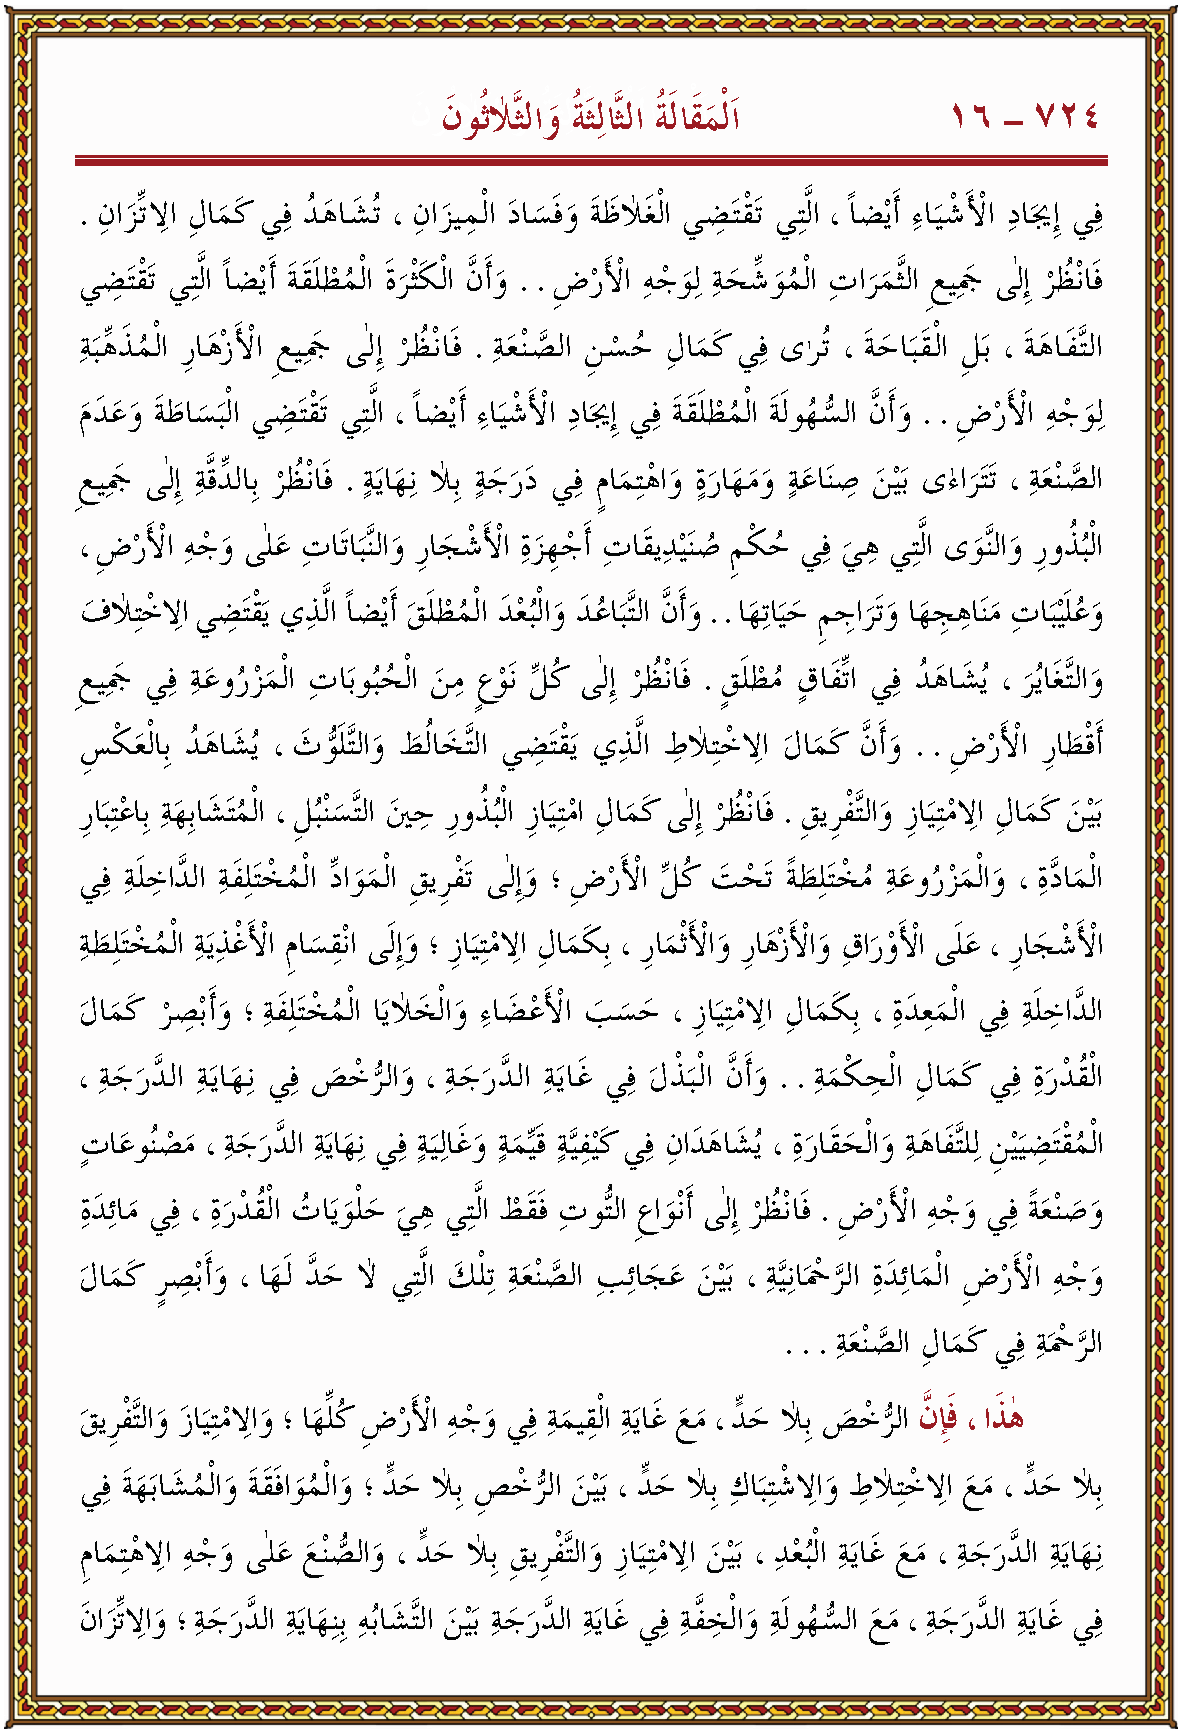 ٧٢٤ – ١٦ اَلْمَقَالَةُ الثَّالِثَةُ وَالثَّلَاثُونَ
فِي إِيجَادِ الْأَشْيَاءِ أَيْضاً ، الَّتِي تَقْتَضِي الْغَلَاظَةَ وَفَسَادَ الْمِيزَانِ ، تُشَاهَدُ فِي كَمَالِ الِاتِّزَانِ .
فَانْظُرْ إِلَى جَمِيعِ الثَّمَرَاتِ الْمُوَشِّحَةِ لِوَجْهِ الْأَرْضِ . . وَأَنَّ الْكَثْرَةَ الْمُطْلَقَةَ أَيْضاً الَّتِي تَقْتَضِي
التَّفَاهَةَ ، بَلِ الْقَبَاحَةَ ، تُرَى فِي كَمَالِ حُسْنِ الصَّنْعَةِ . فَانْظُرْ إِلَى جَمِيعِ الْأَزْهَارِ الْمُذَهِّبَةِ
لِوَجْهِ الْأَرْضِ . . وَأَنَّ السُّهُولَةَ الْمُطْلَقَةَ فِي إِيجَادِ الْأَشْيَاءِ أَيْضاً ، الَّتِي تَقْتَضِي الْبَسَاطَةَ وَعَدَمَ
الصَّنْعَةِ ، تَتَرَاءَى بَيْنَ صِنَاعَةٍ وَمَهَارَةٍ وَاهْتِمَامٍ فِي دَرَجَةٍ بِلَا نِهَايَةٍ . فَانْظُرْ بِالدِّقَّةِ إِلَى جَمِيعِ
الْبُذُورِ وَالنَّوَى الَّتِي هِيَ فِي حُكْمِ صُنَيْدِيقَاتِ أَجْهِزَةِ الْأَشْجَارِ وَالنَّبَاتَاتِ عَلَى وَجْهِ الْأَرْضِ ،
وَعُلَيْبَاتِ مَنَاهِجِهَا وَتَرَاجِمِ حَيَاتِهَا . . وَأَنَّ التَّبَاعُدَ وَالْبُعْدَ الْمُطْلَقَ أَيْضاً الَّذِي يَقْتَضِي الِاخْتِلَافَ
وَالتَّغَايُرَ ، يُشَاهَدُ فِي اتِّفَاقٍ مُطْلَقٍ . فَانْظُرْ إِلَى كُلِّ نَوْعٍ مِنَ الْحُبُوبَاتِ الْمَزْرُوعَةِ فِي جَمِيعِ
أَقْطَارِ الْأَرْضِ . . وَأَنَّ كَمَالَ الِاخْتِلَاطِ الَّذِي يَقْتَضِي التَّخَالُطَ وَالتَّلَوُّثَ ، يُشَاهَدُ بِالْعَكْسِ
بَيْنَ كَمَالِ الِامْتِيَازِ وَالتَّفْرِيقِ . فَانْظُرْ إِلَى كَمَالِ امْتِيَازِ الْبُذُورِ حِينَ التَّسَنْبُلِ ، الْمُتَشَابِهَةِ بِاعْتِبَارِ
الْمَادَّةِ ، وَالْمَزْرُوعَةِ مُخْتَلِطَةً تَحْتَ كُلِّ الْأَرْضِ ؛ وَإِلَى تَفْرِيقِ الْمَوَادِّ الْمُخْتَلِفَةِ الدَّاخِلَةِ فِي
الْأَشْجَارِ ، عَلَى الْأَوْرَاقِ وَالْأَزْهَارِ وَالْأَثْمَارِ ، بِكَمَالِ الِامْتِيَازِ ؛ وَإِلَى انْقِسَامِ الْأَغْذِيَةِ الْمُخْتَلِطَةِ
الدَّاخِلَةِ فِي الْمَعِدَةِ ، بِكَمَالِ الِامْتِيَازِ ، حَسَبَ الْأَعْضَاءِ وَالْخَلَايَا الْمُخْتَلِفَةِ ؛ وَأَبْصِرْ كَمَالَ
الْقُدْرَةِ فِي كَمَالِ الْحِكْمَةِ . . وَأَنَّ الْبَذْلَ فِي غَايَةِ الدَّرَجَةِ ، وَالرُّخْصَ فِي نِهَايَةِ الدَّرَجَةِ ،
الْمُقْتَضِيَيْنِ لِلتَّفَاهَةِ وَالْحَقَارَةِ ، يُشَاهَدَانِ فِي كَيْفِيَّةٍ قَيِّمَةٍ وَغَالِيَةٍ فِي نِهَايَةِ الدَّرَجَةِ ، مَصْنُوعَاتٍ
وَصَنْعَةً فِي وَجْهِ الْأَرْضِ . فَانْظُرْ إِلَى أَنْوَاعِ التُّوتِ فَقَطْ الَّتِي هِيَ حَلْوَيَاتُ الْقُدْرَةِ ، فِي مَائِدَةِ
وَجْهِ الْأَرْضِ الْمَائِدَةِ الرَّحْمَانِيَّةِ ، بَيْنَ عَجَائِبِ الصَّنْعَةِ تِلْكَ الَّتِي لَا حَدَّ لَهَا ، وَأَبْصِرْ كَمَالَ
الرَّحْمَةِ فِي كَمَالِ الصَّنْعَةِ . . .
هٰذَا ، فَإِنَّ الرُّخْصَ بِلَا حَدٍّ ، مَعَ غَايَةِ الْقِيمَةِ فِي وَجْهِ الْأَرْضِ كُلِّهَا ؛ وَالِامْتِيَازَ وَالتَّفْرِيقَ
بِلَا حَدٍّ ، مَعَ الِاخْتِلَاطِ وَالِاشْتِبَاكِ بِلَا حَدٍّ ، بَيْنَ الرُّخْصِ بِلَا حَدٍّ ؛ وَالْمُوَافَقَةَ وَالْمُشَابَهَةَ فِي
نِهَايَةِ الدَّرَجَةِ ، مَعَ غَايَةِ الْبُعْدِ ، بَيْنَ الِامْتِيَازِ وَالتَّفْرِيقِ بِلَا حَدٍّ ، وَالصُّنْعَ عَلَى وَجْهِ الِاهْتِمَامِ
فِي غَايَةِ الدَّرَجَةِ ، مَعَ السُّهُولَةِ وَالْخِفَّةِ فِي غَايَةِ الدَّرَجَةِ بَيْنَ التَّشَابُهِ بِنِهَايَةِ الدَّرَجَةِ ؛ وَالِاتِّزَانَ